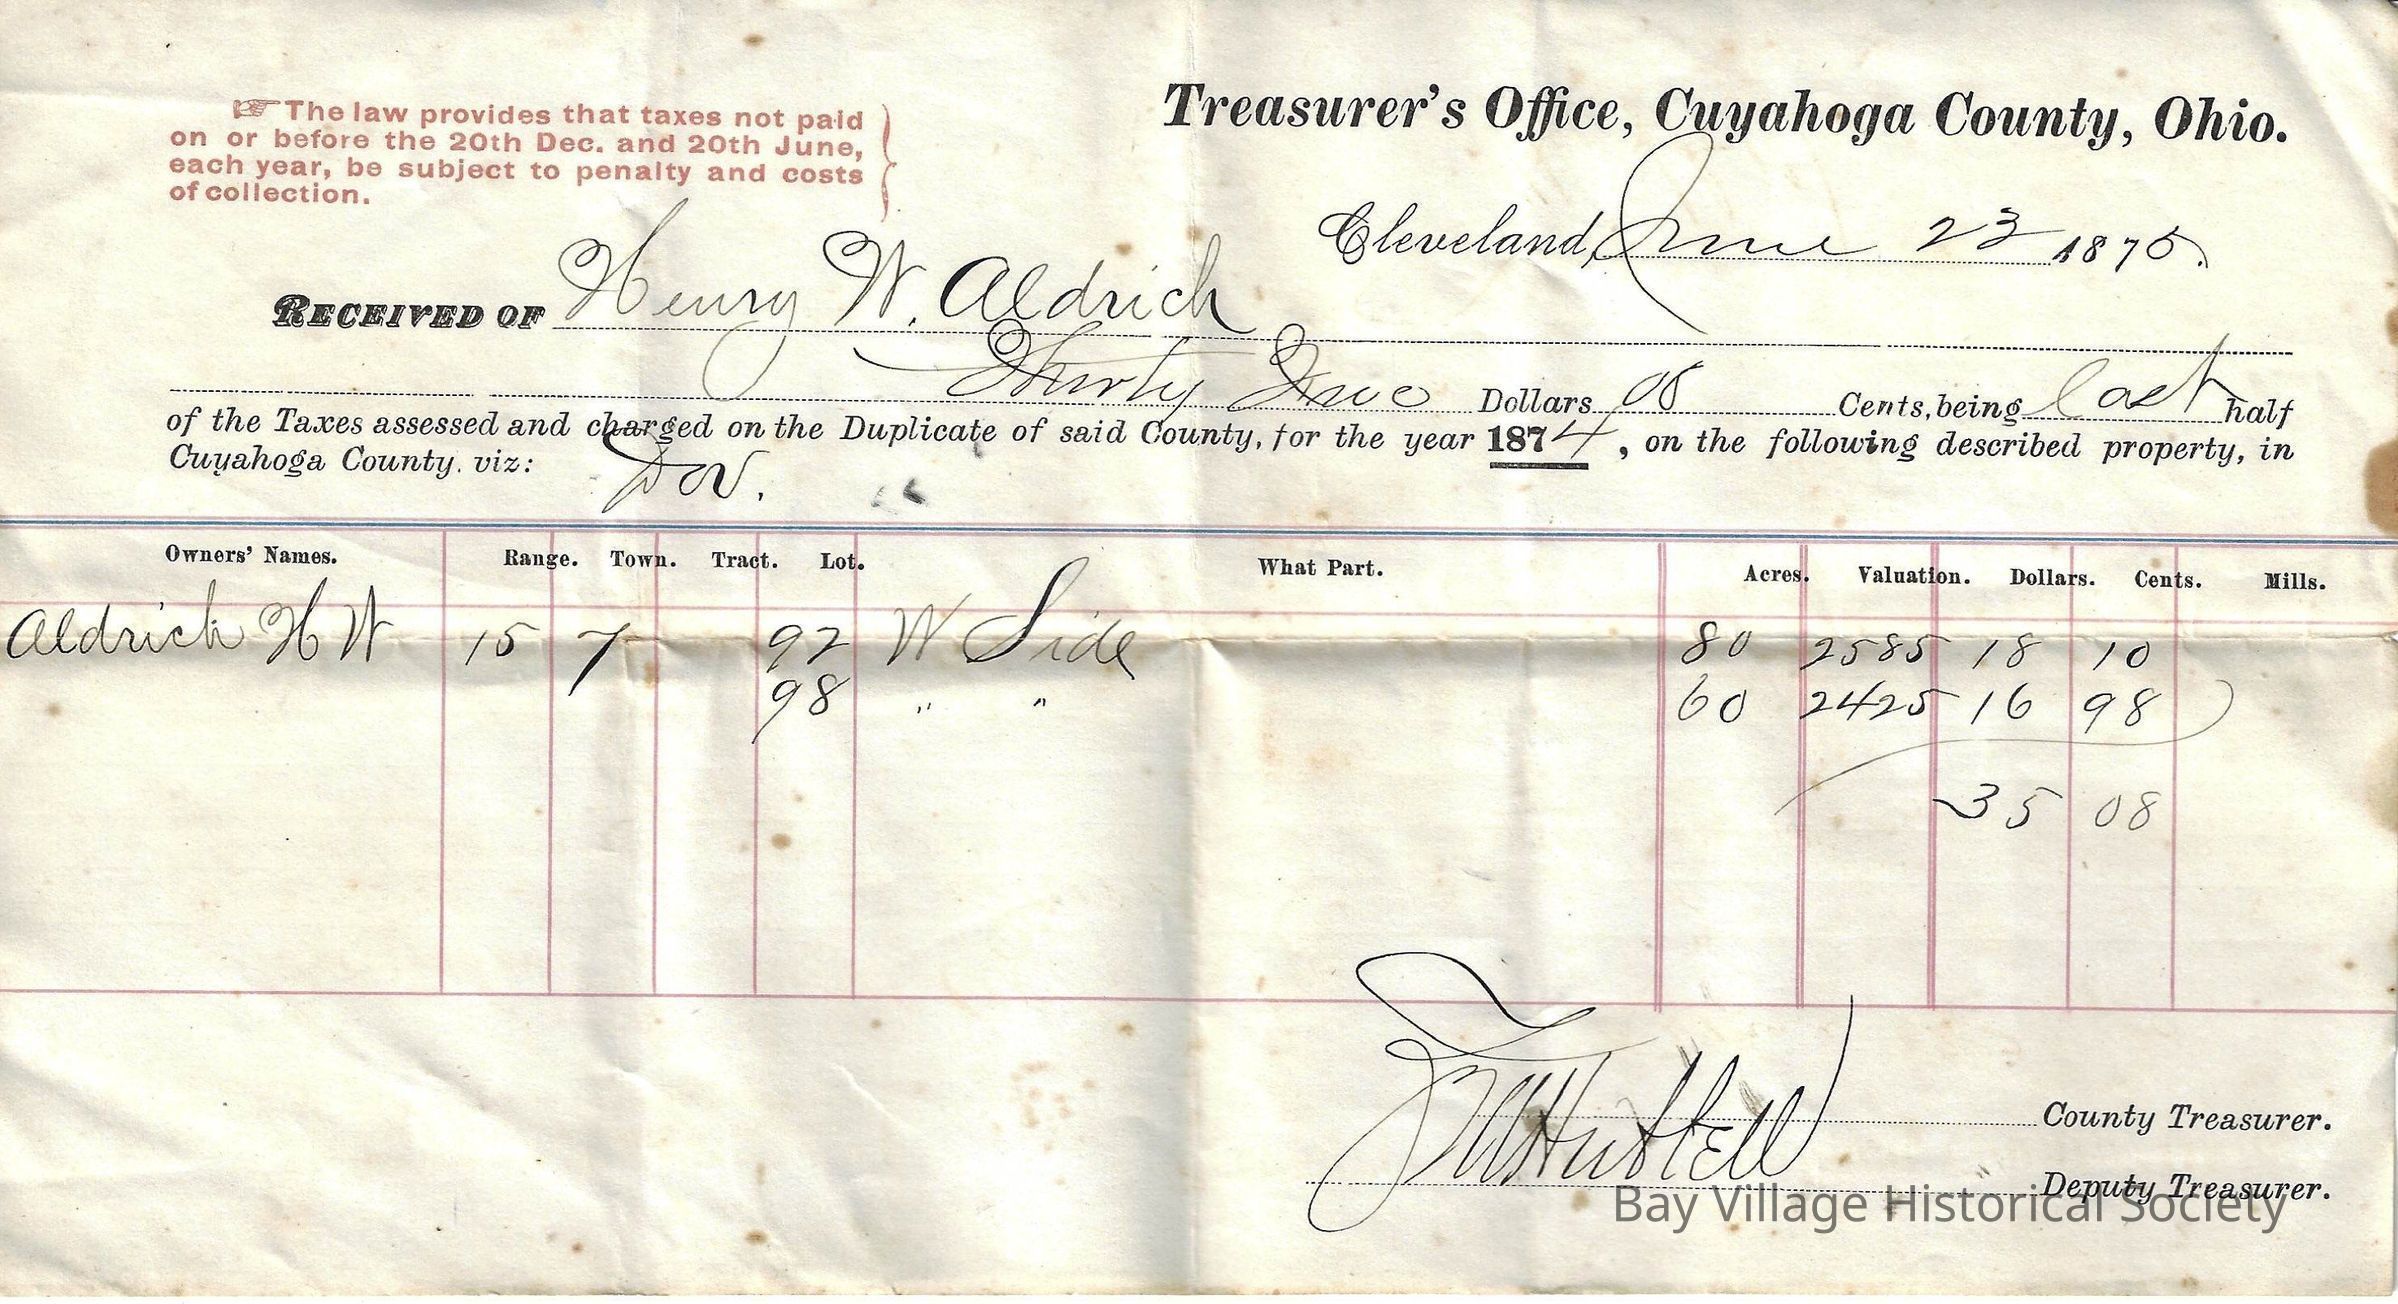 ☞ The law provides that taxes not paid
on or before the 20th Dec. and 20th June,
each year, be subject to penalty and costs
of collection.
Treasurer's Office, Cuyahoga County, Ohio.
Cleveland, June 23 1875.
RECEIVED OF Henry W. Aldrich
Thirty Five Dollars 08 Cents, being last half
of the Taxes assessed and charged on the Duplicate of said County, for the year 1874, on the following described property, in
Cuyahoga County. viz: Dov.
Owners' Names. Range. Town. Tract. Lot. What Part. Acres. Valuation. Dollars. Cents. Mills.
Aldrich H W 15 7 92 W Side 80 2585 18 10
98 " " 60 2425 16 98
35 08
County Treasurer.
Deputy Treasurer.
Bay Village Historical Society